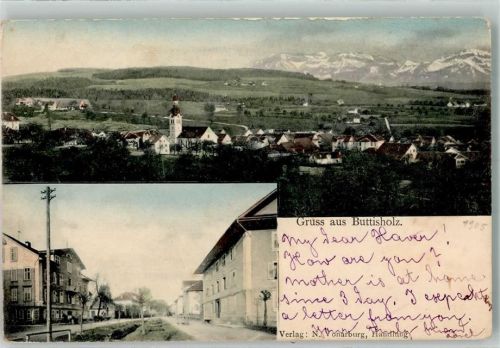 Gruss aus Buttisholz.
1905
My dear Haver!
How are you?
mother is at home
since 3 day. I expect
a letter from you.
your
Verlag: N. Vonarburg, Handlung.